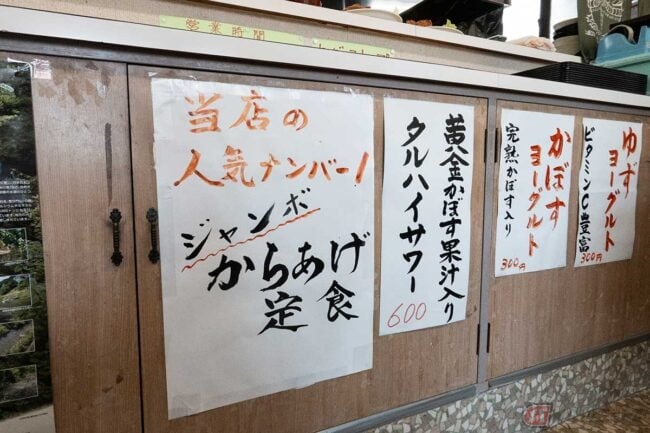 営業時間
当店の
人気ナンバー1
ジャンボ
からあげ
定食
黄金かぼす果汁入り
タルハイサワー
600
かぼす
ヨーグルト
完熟かぼす入り
300円
ゆず
ヨーグルト
ビタミンC豊富
300円